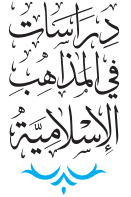 دراسات
في المذاهب
الإسلامية